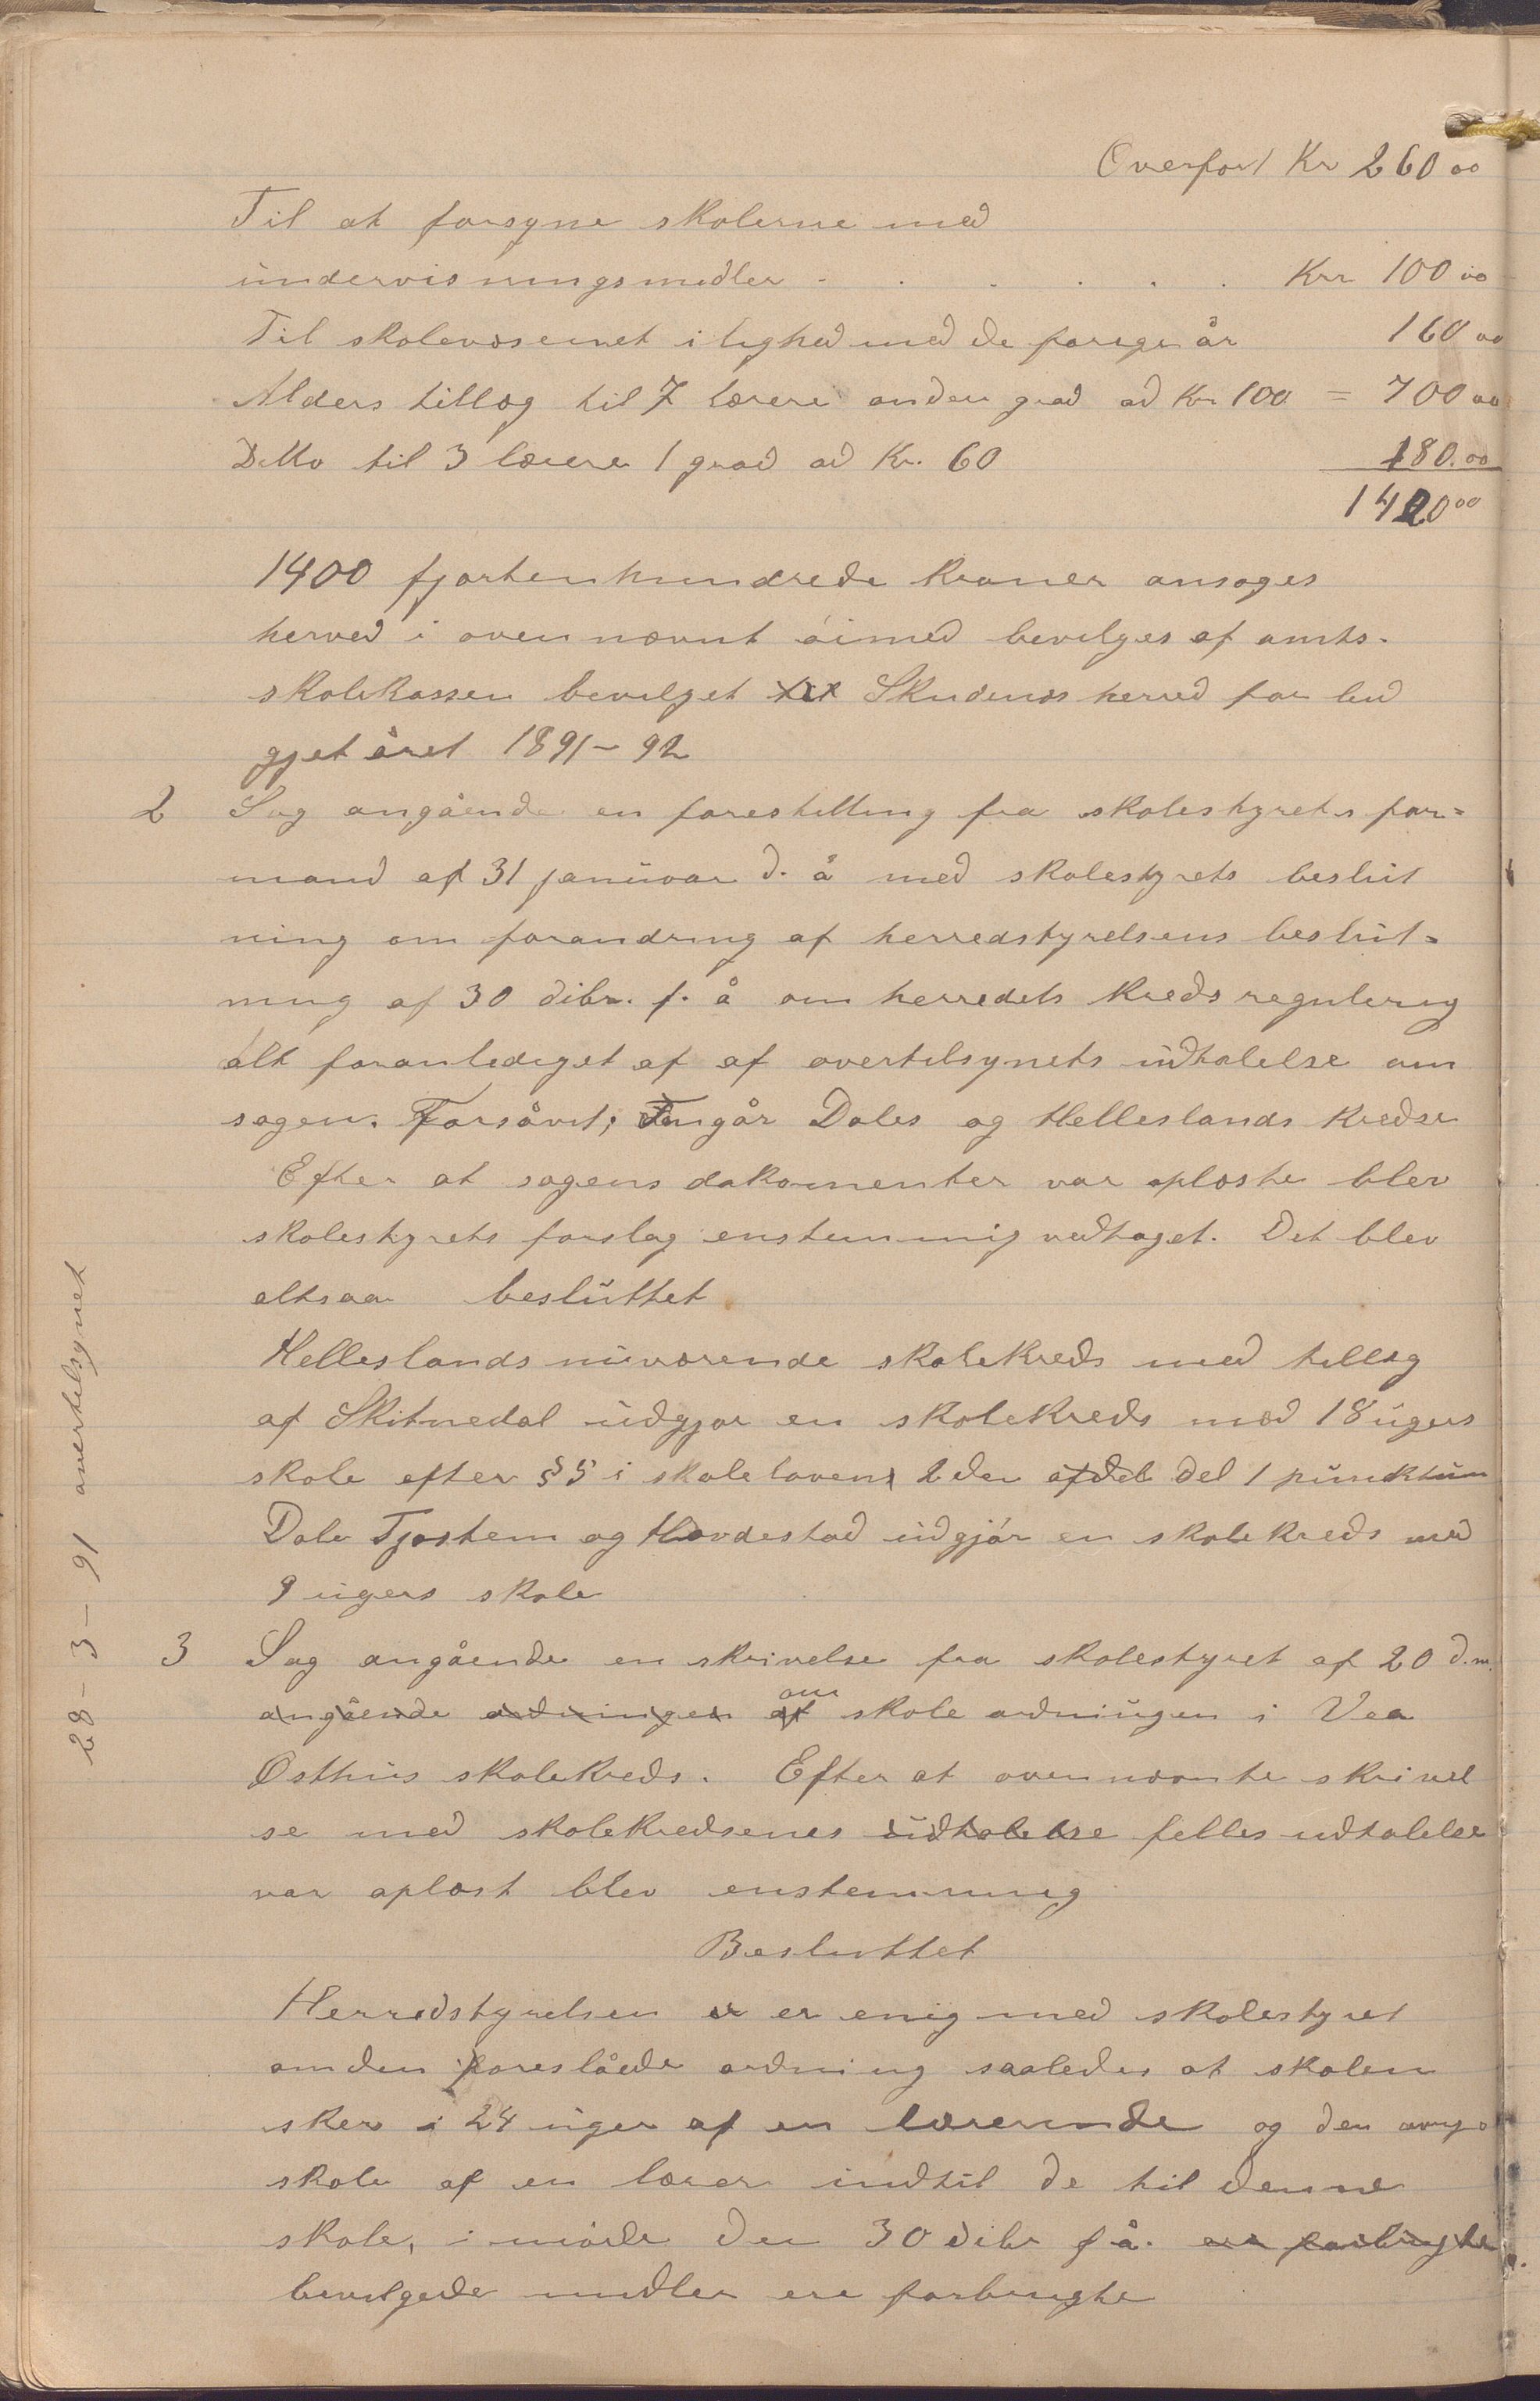 Overført Kr 260 00
Til at forsyne skolerne med
undervisningsmidler - . . . . . Krr 100 00
Til skolevæsenet i lighed med de forige år 160 00
Alders tillæg til 7 lærere anden grad ad Kr 100 = 700 00
Ditto til 3 lærere 1 grad ad Kr. 60 180.00
1420 00
1400 fjortenhundrede kroner ansøges
herved i ovennævnt øimed bevilges af amts-
skolekassen bevilget Skudenæs herred for bud
gjet året 1891-92
2 Sag angående en forestilling fra skolestyrets for=
mand af 31 januar d. å med skolestyrets beslut
ning om forandring af herredstyrelsens beslut=
ning af 30 dibr. f. å om herredets kreds regulering
alt foranlediget af af overtilsynets udtalelse om
sagen. Forsåvit, angår Dales og Helleslands kredse
Efter at sagens dokumenter var oplæste blev
skolestyrets forslag enstemmig vedtaget. Det blev
altsaa besluttet
Helleslands nuværende skolekreds med tillæg
af Skitnedal udgjør en skolekreds med 18 ugers
skole efter §5 i skoleloven 2den afdel del 1 punktum
Dale Tjøstem og Hovdestad udgjør en skolekreds med
9 ugers skole
3 Sag angående en skrivelse fra skolestyret af 20 d.m.
angående ordningen af om skole ordningen i Vea
Østhus skolekreds. Efter at ovennævnte skrivel
se med skolekredsenes udtalelse felles udtalelse
var oplæst blev enstemmig
Besluttet
Herredstyrelsen er er enig med skolestyret
om den foreslåede ordning saaledes at skolen
sker i 24 uger af en lærerinde og den
skole af en lærer indtil de til denne
skole, i møde den 30 dibr f å. ere forbrugte
bevilgede midler ere forbrugte
28-3-91 overtilsynet